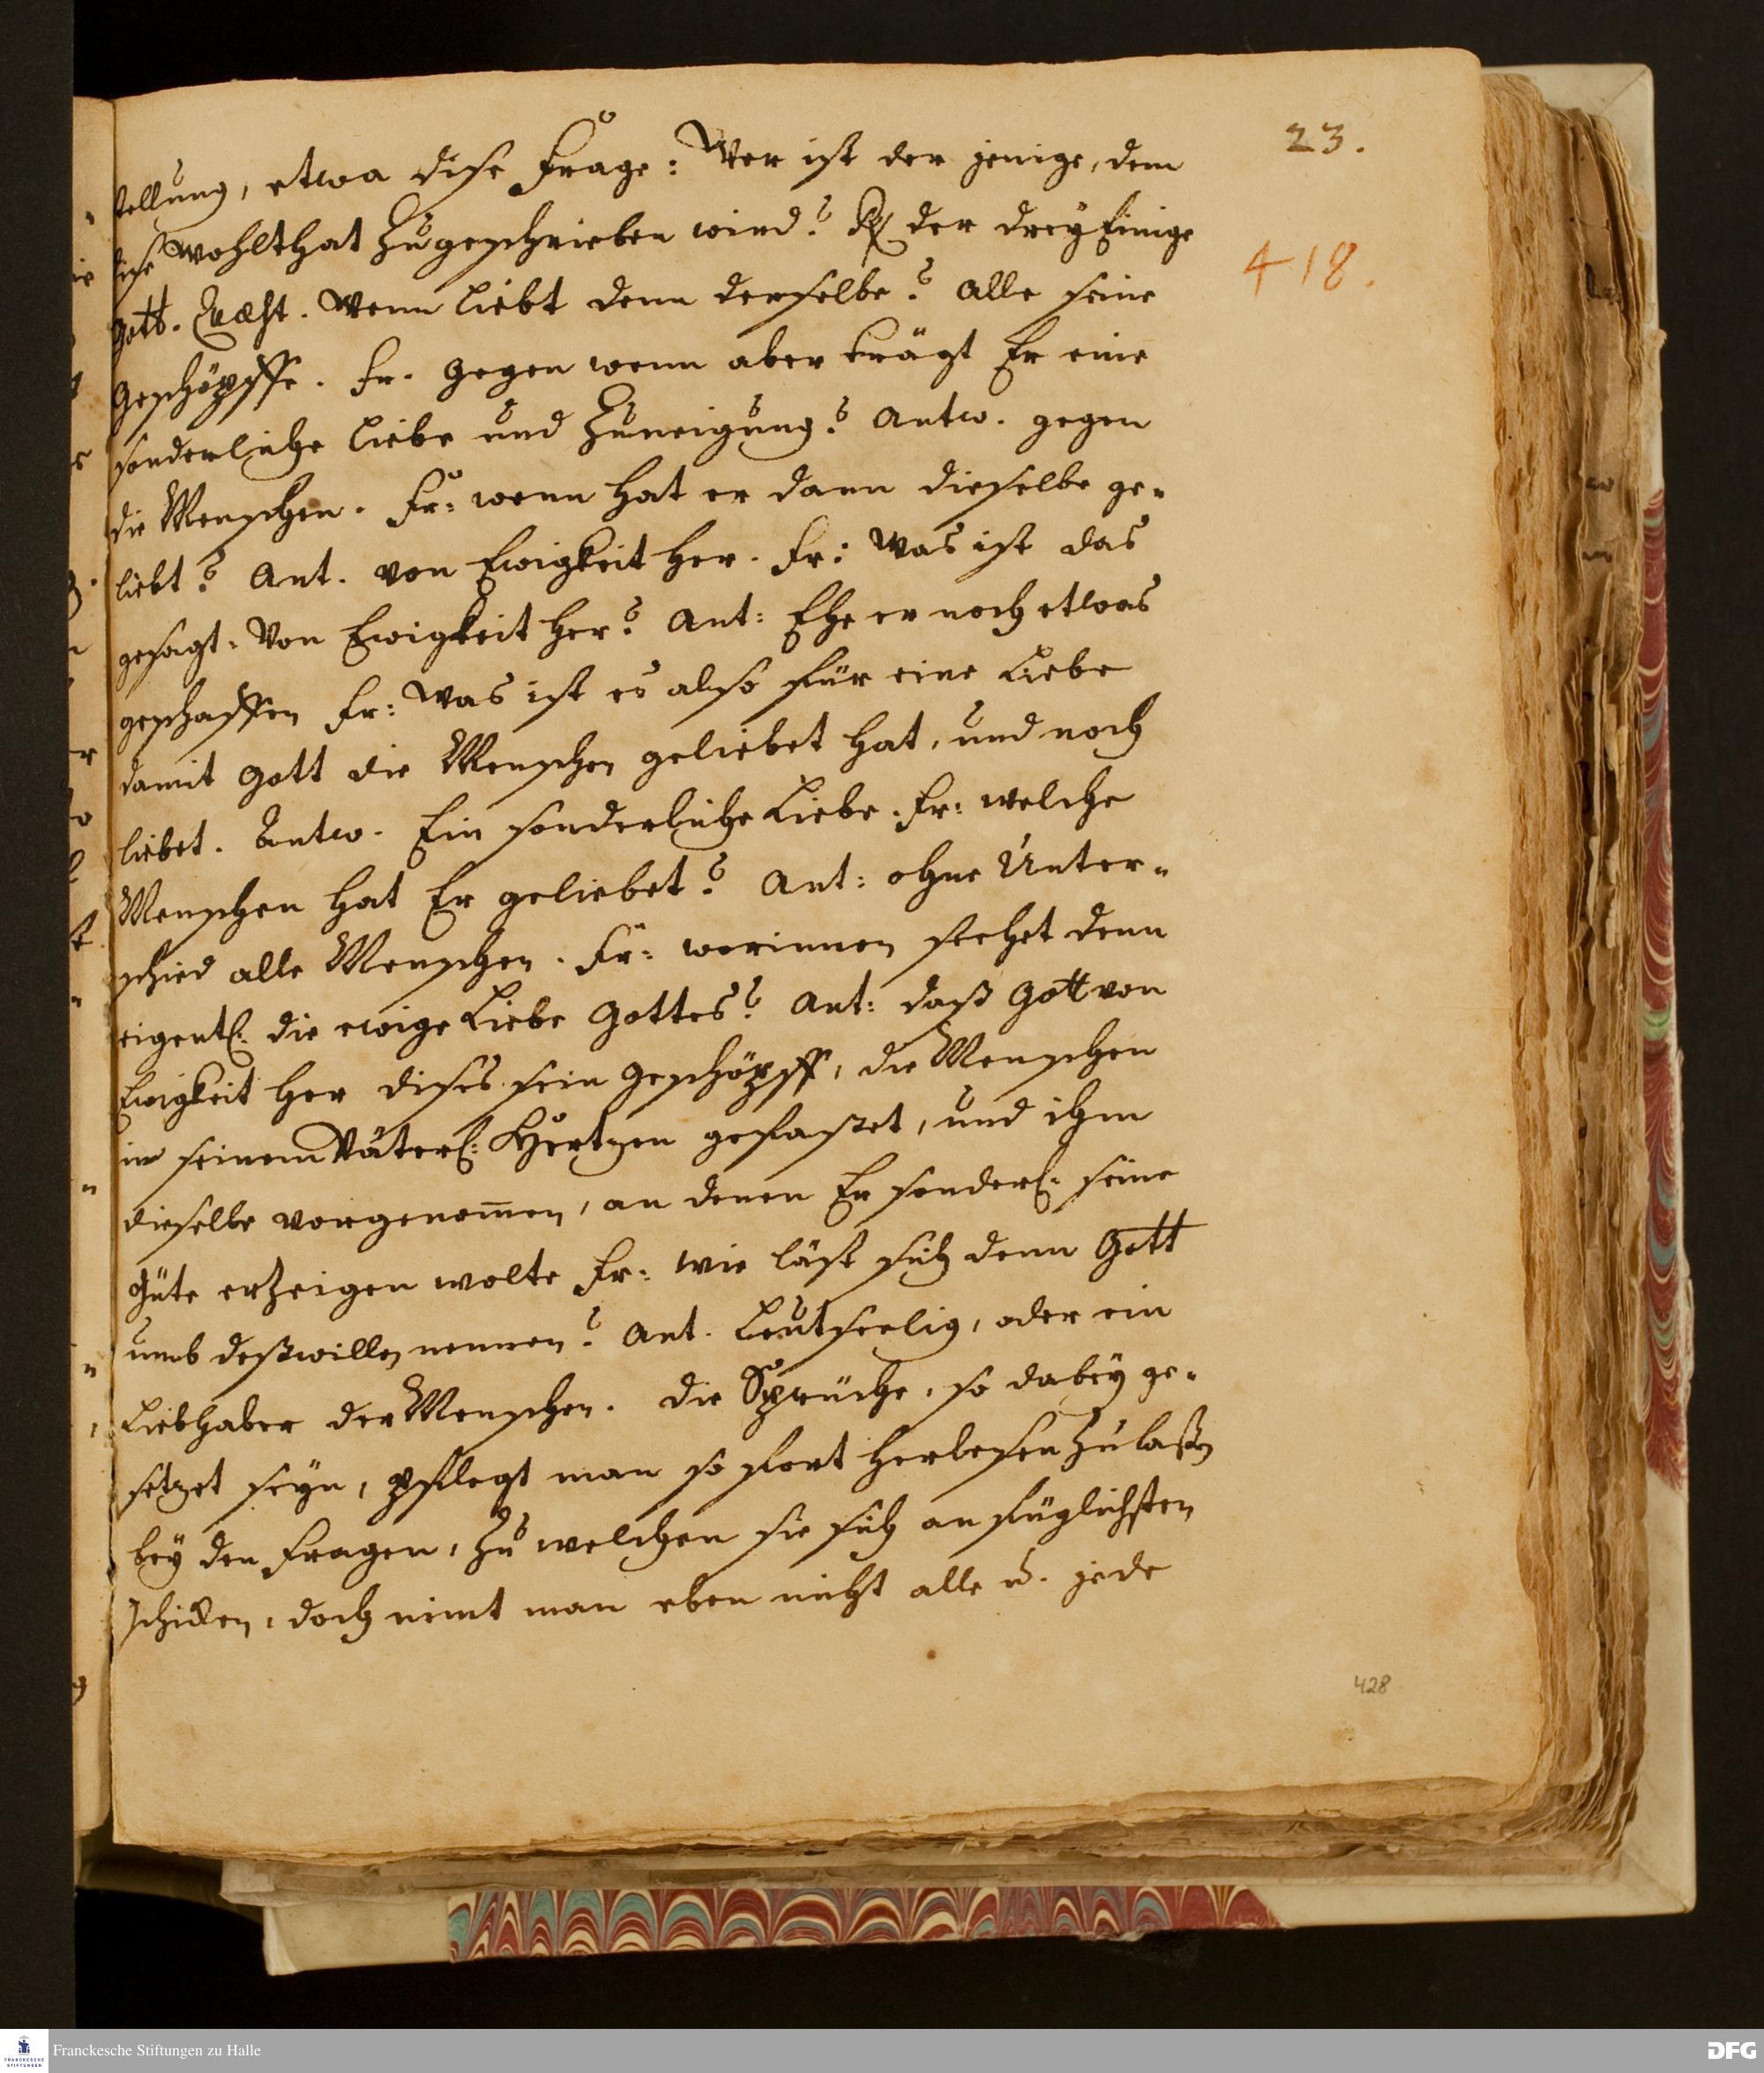 23.
stellung, etwa dise Frage: Wer ist der jenige, dem
dise Wohlthat zugeschrieben wird? Rx der dreyEinige
Gott. Quæst. Wenn liebt denn derselbe? Alle seine
Geschöpffe. Fr. Gegen wenn aber trägt Er eine
sonderliche Liebe und Zuneigung? Antw. gegen
die Menschen. Fr: wenn hat er dann dieselbe ge-
liebt? Ant. von Ewigkeit her. Fr: Was ist das
gesagt: Von Ewigkeit her? Ant: Ehe er noch etwas
geschaffen Fr: Was ist es also für eine Liebe
damit Gott die Menschen geliebet hat, und noch
liebet. Antw. Ein sonderliche Liebe. Fr: welche
Menschen hat Er geliebet? Ant: ohne Unter-
schied alle Menschen. Fr: worinnen stehet denn
eigentl: die ewige Liebe Gottes? Ant: daß Gott von
Ewigkeit her dises sein Geschöpff, die Menschen
in seinem Väterl: Hertzen gefasset, und ihm
dieselbe vorgenom̅en, an denen Er sonderl: seine
Güte erzeigen wolte Fr: Wie läst sich denn Gott
umb deßwillen nennen? Ant. Leutseelig, oder ein
Liebhaber der Menschen. Die Sprüche, so dabey ge-
setzet seyn, pflegt man so fort herlesen zu laßen
bey den Fragen, zu welchen sie sich am füglichsten
schicken, doch nimt man eben nicht alle u. jede
418.
428
Franckesche Stiftungen zu Halle
FRANCKESCHE
STIFTUNGEN
DFG